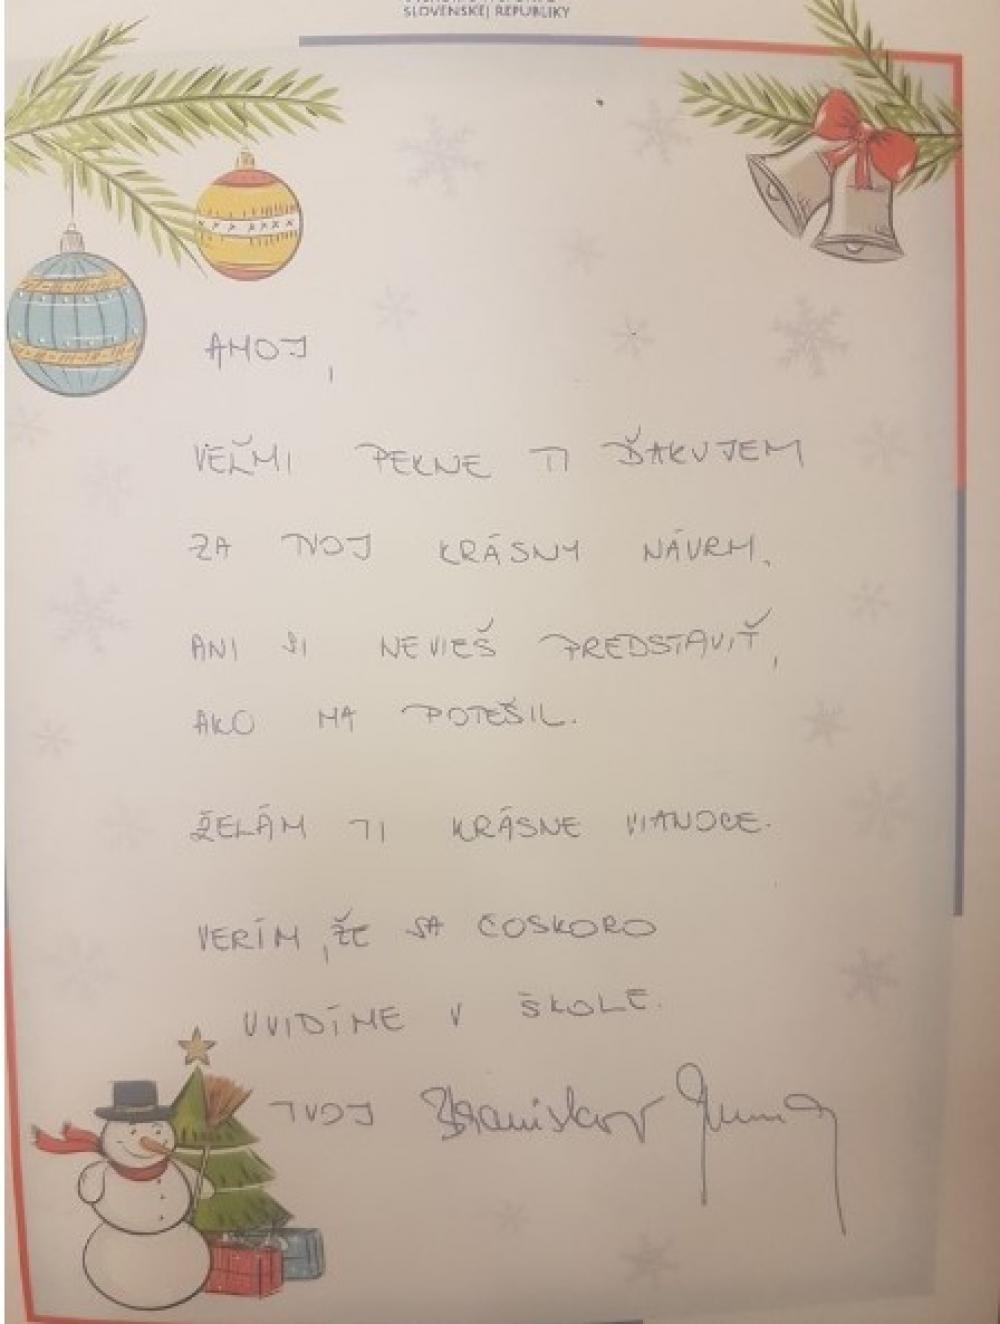 SLOVENSKEJ REPUBLIKY
AHOJ,
VEĽMI PEKNE TI ĎAKUJEM
ZA TVOJ KRÁSNY NÁVRH.
ANI SI NEVIEŠ PREDSTAVIŤ,
AKO MA POTEŠIL.
ŽELÁM TI KRÁSNE VIANOCE.
VERÍM, ŽE SA ČOSKORO
UVIDÍME V ŠKOLE.
TVOJ Branislav